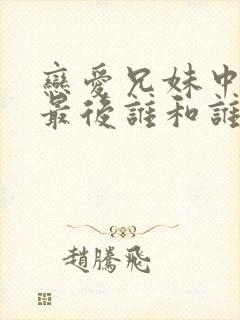 戀愛兄妹中
最後誰和誰
趙騰飛